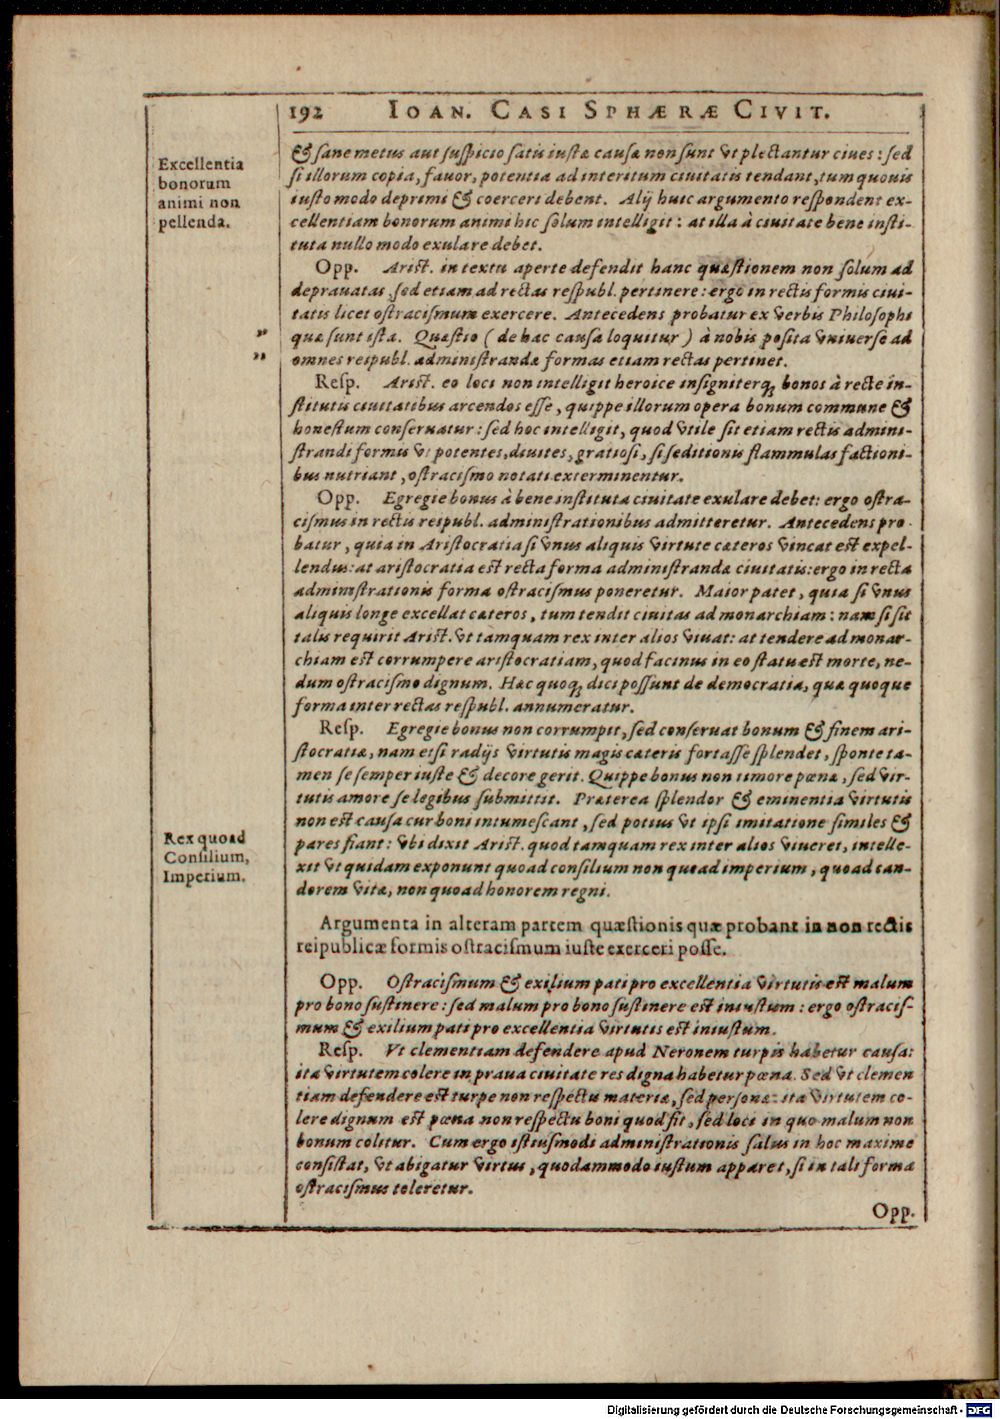 192 IOAN. CASI SPHÆRÆ CIVIT.
Excellentia
bonorum
animi non
pellenda.
& sane metus aut suspicio satis iustæ causæ non sunt vt plectantur ciues: sed
si illorum copia, fauor, potentia ad interitum ciuitatis tendant, tum quouis
iusto modo deprimi & coerceri debent. Alij huic argumento respondent ex-
cellentiam bonorum animi hic solum intelligit: at illa à ciuitate bene insti-
tuta nullo modo exulare debet.
Opp. Arist. in textu aperte defendit hanc quæstionem non solum ad
deprauatas, sed etiam ad rectas respubl. pertinere: ergo in rectis formis ciui-
tatis licet ostracismum exercere. Antecedens probatur ex verbis Philosophi
„ quæ sunt ista. Quæstio (de hac causa loquitur) à nobis posita vniuerse ad
„ omnes reipubl. administrandæ formas etiam rectas pertinet.
Resp. Arist. eo loci non intelligit heroice insigniterq; bonos à recte in-
stitutis ciuitatibus arcendos esse, quippe illorum opera bonum commune &
honestum conseruatur: sed hoc intelligit, quod vtile sit etiam rectis admini-
strandi formis vt potentes, diuites, gratiosi, si seditionis flammulas factioni-
bus nutriant, ostracismo notati exterminentur.
Opp. Egregie bonus à bene instituta ciuitate exulare debet: ergo ostra-
cismus in rectis reipubl. administrationibus admitteretur. Antecedens pro-
batur, quia in Aristocratia si vnus aliquis virtute cæteros vincat est expel-
lendus: at aristocratia est recta forma administrandæ ciuitatis: ergo in recta
administrationis forma ostracismus poneretur. Maior patet, quia si vnus
aliquis longe excellat cæteros, tum tendit ciuitas ad monarchiam: nam si sit
talis requirit Arist. vt tamquam rex inter alios viuat: at tendere ad monar-
chiam est corrumpere aristocratiam, quod facinus in eo statu est morte, ne-
dum ostracismo dignum. Hæc quoq; dici possunt de democratia, quæ quoque
forma inter rectas respubl. annumeratur.
Resp. Egregie bonus non corrumpit, sed conseruat bonum & finem ari-
stocratiæ, nam etsi radijs virtutis magis cæteris fortasse splendet, sponte ta-
men se semper iuste & decore gerit. Quippe bonus non timore pœnæ, sed vir-
tutis amore se legibus submittit. Præterea splendor & eminentia virtutis
non est causa cur boni intumescant, sed potius vt ipsi imitatione similes &
pares fiant: vbi dixit Arist. quod tamquam rex inter alios viueret, intelle-
xit vt quidam exponunt quoad consilium non quoad imperium, quoad can-
dorem vitæ, non quoad honorem regni.
Rex quoad
Consilium,
Imperium.
Argumenta in alteram partem quæstionis quæ probant in non rectis
reipublicæ formis ostracismum iuste exerceri posse.
Opp. Ostracismum & exilium pati pro excellentia virtutis est malum
pro bono sustinere: sed malum pro bono sustinere est iniustum: ergo ostracis-
mum & exilium pati pro excellentia virtutis est iniustum.
Resp. Vt clementiam defendere apud Neronem turpis habetur causa:
ita virtutem colere in praua ciuitate res digna habetur pœna. Sed vt clemen
tiam defendere est turpe non respectu materiæ, sed personæ: ita virtutem co-
lere dignum est pœna non respectu boni quod fit, sed loci in quo malum non
bonum colitur. Cum ergo istiusmodi administrationis salus in hoc maxime
consistat, vt abigatur virtus, quodammodo iustum apparet, si in tali forma
ostracismus toleretur.
Opp.
Digitalisierung gefördert durch die Deutsche Forschungsgemeinschaft - DFG